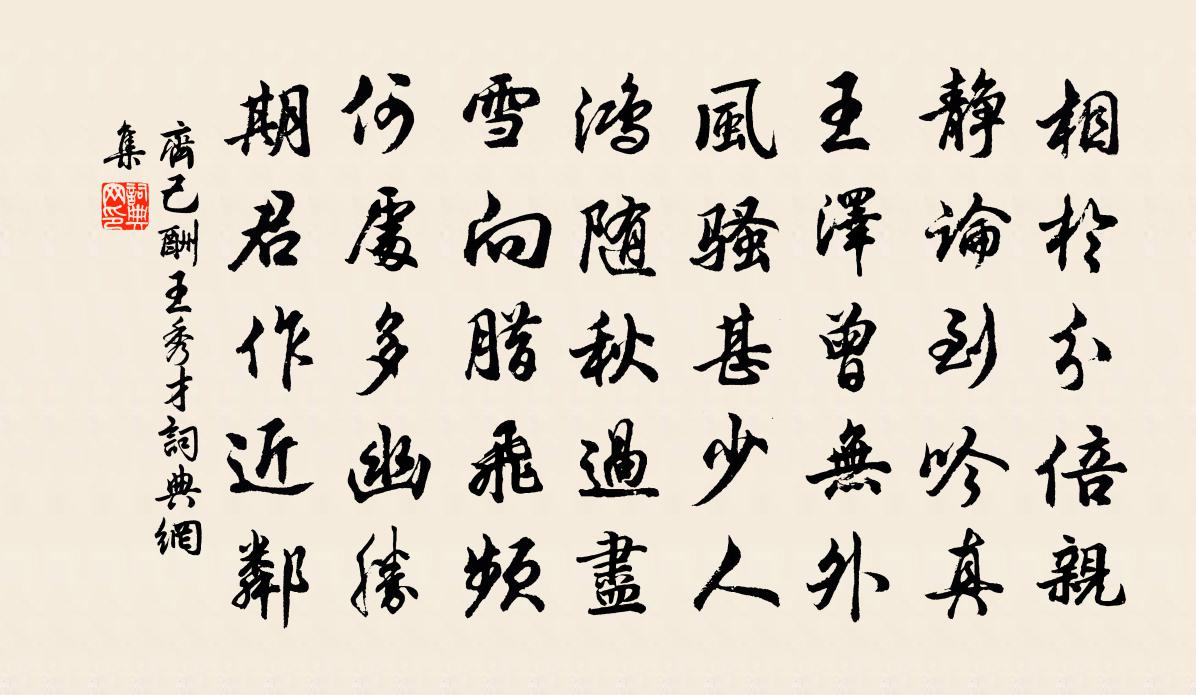 相於分倍親
靜論到吟真
王澤曾無外
風騷甚少人
鴻隨秋過盡
雪向腊飛頻
何處多幽勝
期君作近鄰
齊己酬王秀才詞典網
集
詞典
网印